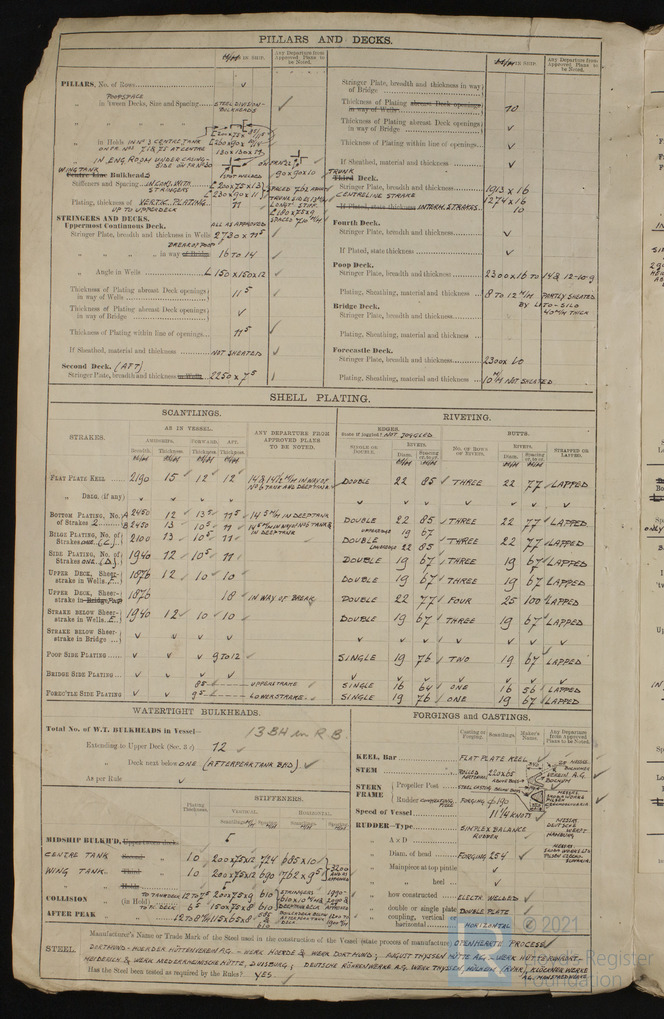 PILLARS AND DECKS.
IN SHIP.
Any Departure from Approved Plans to be Noted.
PILLARS, No. of Rows
POOPSPACE
in 'tween Decks, Size and Spacing
STEEL DIVISION-BULKHEADS
in Holds IN No 3 CENTRE TANK
IN ENG ROOM UNDER CASING-
WING TANK
Centre Line Bulkheads
SPOT WELDED
90 x 90 x 10
Stiffeners and Spacing
Plating, thickness of VERTIC. PLATING
11
UP TO UPPERDECK
STRINGERS AND DECKS.
Uppermost Continuous Deck.
ALL AS APPROVED
Stringer Plate, breadth and thickness in Wells 2730 x 11.5
BREAK OF POOP
in way of Bridge 16 to 14
Angle in Wells L 150 x 150 x 12
Thickness of Plating abreast Deck openings in way of Wells 11.5
Thickness of Plating abreast Deck openings in way of Bridge
Thickness of Plating within line of openings 11.5
If Sheathed, material and thickness NOT SHEATED
Second Deck. (AFT)
Stringer Plate, breadth and thickness in Wells 2250 x 7.5
IN SHIP.
Any Departure from Approved Plans to be Noted.
Stringer Plate, breadth and thickness in way of Bridge
Thickness of Plating abreast Deck openings in way of Wells 10
Thickness of Plating abreast Deck openings in way of Bridge
Thickness of Plating within line of openings
If Sheathed, material and thickness
TRUNK
Third Deck.
Stringer Plate, breadth and thickness 1913 x 16
CENTRELINE STRAKE 1274 x 16
If Plated, state thickness INTERM. STRAKES 10
Fourth Deck.
Stringer Plate, breadth and thickness
If Plated, state thickness
Poop Deck.
Stringer Plate, breadth and thickness 2300 x 16 to 14 & 12-10-9
Plating, Sheathing, material and thickness 8 to 12 M/M PARTLY SHEATED
BY LITO-SILO
40 M/M THICK
Bridge Deck.
Stringer Plate, breadth and thickness
Plating, Sheathing, material and thickness
Forecastle Deck.
Stringer Plate, breadth and thickness 2300 x 10
Plating, Sheathing, material and thickness 10 M/M NOT SHEATED
SHELL PLATING.
SCANTLINGS.
RIVETING.
STRAKES.
AS IN VESSEL.
AMIDSHIPS. FORWARD. AFT.
Breadth. Thickness. Thickness. Thickness.
ANY DEPARTURE FROM APPROVED PLANS TO BE NOTED.
EDGES.
State if joggled? NOT JOGGLED.
SINGLE OR DOUBLE.
RIVETS.
NO. OF ROWS OF RIVETS.
BUTTS.
RIVETS.
STRAPPED OR LAPPED.
FLAT PLATE KEEL 2190 15 12 12 DOUBLE 22 85 THREE 22 77 LAPPED
" DBLG. (if any)
BOTTOM PLATING, No. of Strakes 2 A 2450 12 13.5 11.5 14.5 M/M IN WAY OF N06 TANK AND DEEPTANK DOUBLE 22 85 THREE 22 77 LAPPED
B 2450 13 10.5 11
BILGE PLATING, No. of Strakes ONE (C) 2100 13 10.5 11 DOUBLE 22 85 THREE 22 77 LAPPED
SIDE PLATING, No. of Strakes ONE (D) 1940 12 10.5 11 DOUBLE 19 67 THREE 19 67 LAPPED
UPPER DECK, Sheer-strake in Wells F 1876 12 10 10 DOUBLE 19 67 THREE 19 67 LAPPED
UPPER DECK, Sheer-strake in Bridge 1876 18 IN WAY OF BREAK DOUBLE 22 77 FOUR 25 100 LAPPED
STRAKE BELOW Sheer-strake in Wells E 1940 12 10 10 DOUBLE 19 67 THREE 19 67 LAPPED
STRAKE BELOW Sheer-strake in Bridge
POOP SIDE PLATING 9 TO 12 SINGLE 19 76 TWO 19 67 LAPPED
BRIDGE SIDE PLATING
8.5 UPPERSTRAKE SINGLE 16 64 ONE 16 56 LAPPED
FORECTLE SIDE PLATING 9.5 LOWERSTRAKE SINGLE 19 76 ONE 19 67 LAPPED
WATERTIGHT BULKHEADS.
Total No. of W.T. BULKHEADS in Vessel—
13 BH in R.B.
Extending to Upper Deck (Sec. 3 c) 12
" Deck next below ONE (AFTERPEAK TANK BHD)
As per Rule
Plating Thickness.
STIFFENERS.
VERTICAL. HORIZONTAL.
MIDSHIP BULKH'D,
CENTRE TANK 10 200x75x12 724 685 x 10
WING TANK 10 200x75x12 690 762 x 9.5
COLLISION (in Hold)
TO TANKDECK 12 to 7.5 200x75x9 610
6.5 150x75x8 610
AFTER PEAK 12 to 8
FORGINGS and CASTINGS.
Casting or Forging. Scantlings. Maker's Name. Any Departure from Approved Plans to be Noted.
KEEL, Bar FLAT PLATE KEEL
STEM ROLLED MATERIAL 220x65
STERN FRAME
Propeller Post STEEL CASTING
Rudder FORGING ø 190
Speed of Vessel 11 1/4 KNOTS
RUDDER—Type SIMPLEX BALANCE RUDDER
MESSRS DEUTSCHE WERFT HAMBURG
A x D
Diam. of head FORGING 254
Mainpiece at top pintle
" heel
how constructed ELECTR. WELDED
double or single plate DOUBLE PLATE
coupling, vertical or horizontal HORIZONTAL
STEEL.
Manufacturer's Name or Trade Mark of the Steel used in the construction of the Vessel (state process of manufacture) OPENHEARTH PROCESS
DORTMUND-HOERDER HÜTTENVEREIN A.G. - WERK HOERDE & WERK DORTMUND; AUGUST THYSSEN HÜTTE A.G. - WERK HÜTTE RUHRORT-
MEIDERICH & WERK NIEDERRHEINISCHE HÜTTE, DUISBURG; DEUTSCHE RÖHRENWERKE A.G. WERK THYSSEN, MÜLHEIM (RUHR); KLÖCKNER WERKE
Has the Steel been tested as required by the Rules? YES
© 2021
Lloyd's Register
Foundation